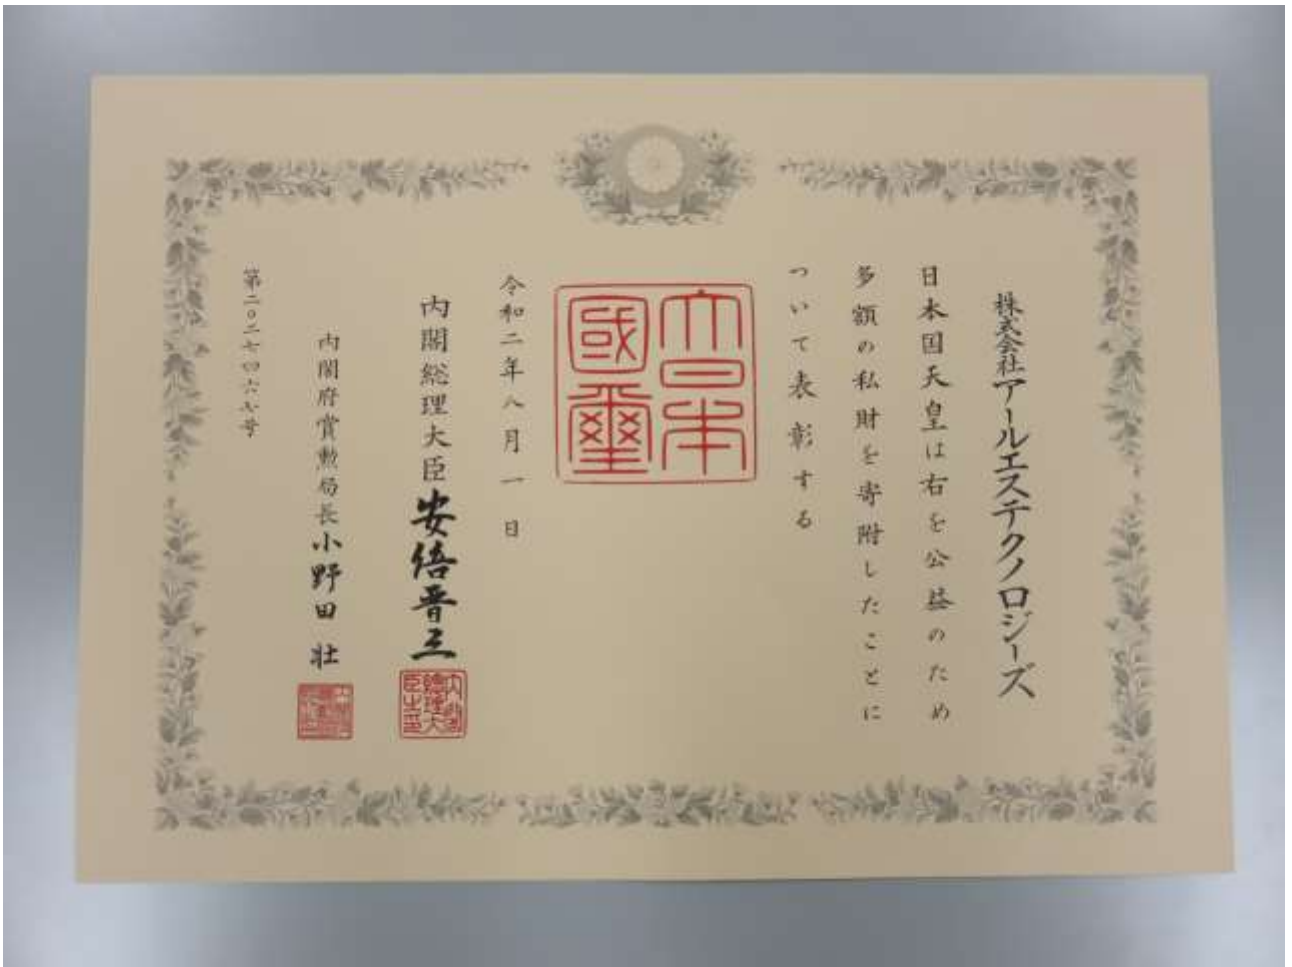 株式会社アールエステクノロジーズ
日本国天皇は右を公益のため
多額の私財を寄附したことに
ついて表彰する
大日本
國璽
令和二年八月一日
内閣総理大臣 安倍晋三
内閣府賞勲局長 小野田 壮